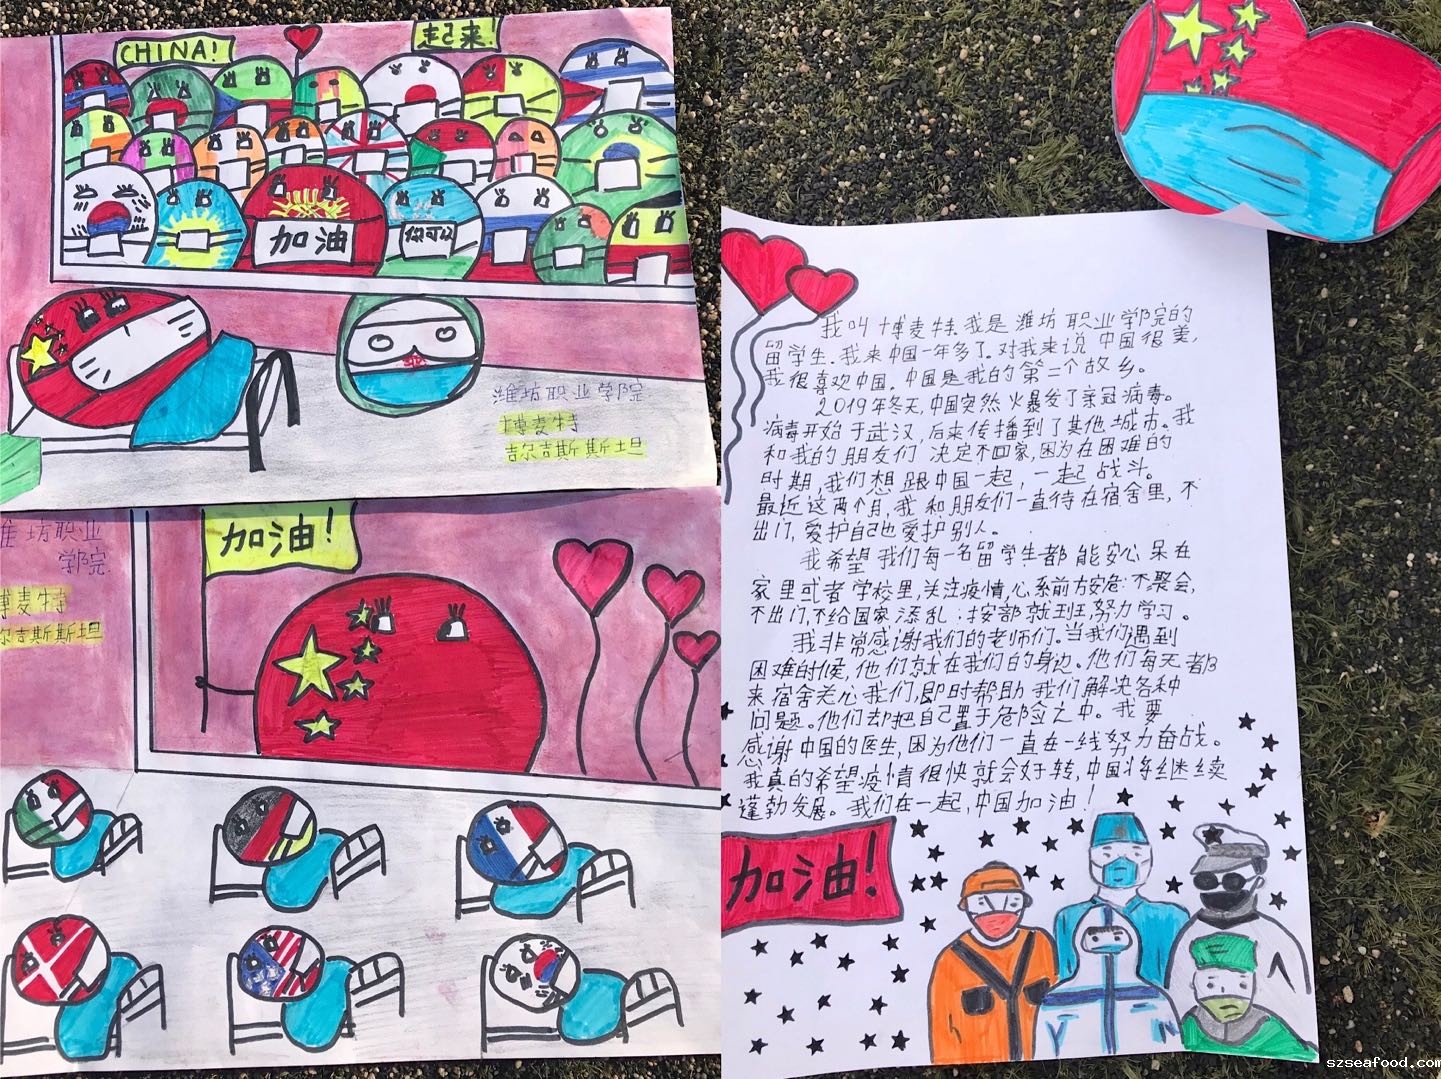 CHINA!
起来!
加油
你可以
潍坊职业学院
博麦特
吉尔吉斯斯坦
潍坊职业
学院
博麦特
尔吉斯斯坦
加油!
我叫博麦特.我是潍坊职业学院的
留学生.我来中国一年多了.对我来说中国很美,
我很喜欢中国.中国是我的第二个故乡。
2019年冬天,中国突然火暴发了亲冠病毒。
病毒开始于武汉,后来传播到了其他城市。我
和我的朋友们决定不回家,因为在困难的
时期,我们想跟中国一起,一起战斗。
最近这两个月,我和朋友们一直待在宿舍里,不
出门,爱护自己也爱护别人。
我希望我们每一名留学生都能安心呆在
家里或者学校里,关注疫情,心系前方安危:不聚会,
不出门,不给国家添乱;按部就班努力学习。
我非常感谢我们的老师们.当我们遇到
困难的时候,他们就在我们的身边。他们每天都
来宿舍关心我们,即时帮助我们解决各种
问题。他们却把自己置于危险之中。我要
感谢中国的医生,因为他们一直在一线努力奋战。
我真的希望疫情很快就会好转,中国将继续
蓬勃发展。我们在一起,中国加油!
加油!
szseafood.com